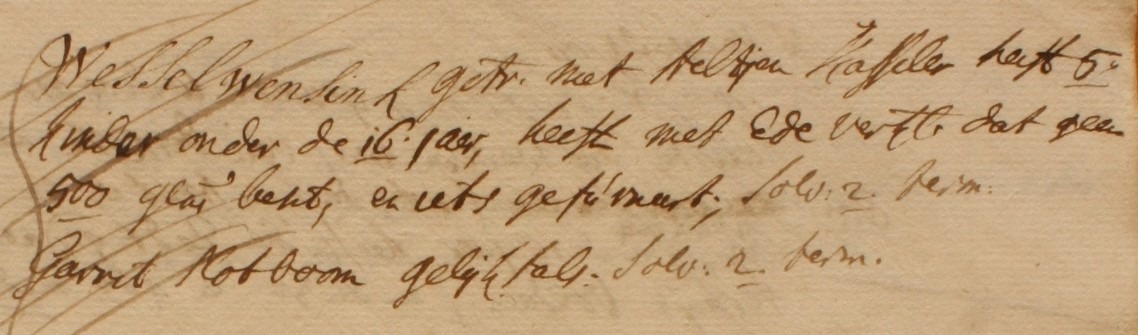 Wessel Wensink getr. met Aeltjen Hasseler heeft 5
kinder onder de 16 jaer, heeft met Ede verkl. dat geen
500 gl besit, en iets
Solv: 2 term:
Garrit Notboom gelijk fals. Solv: 2 term.